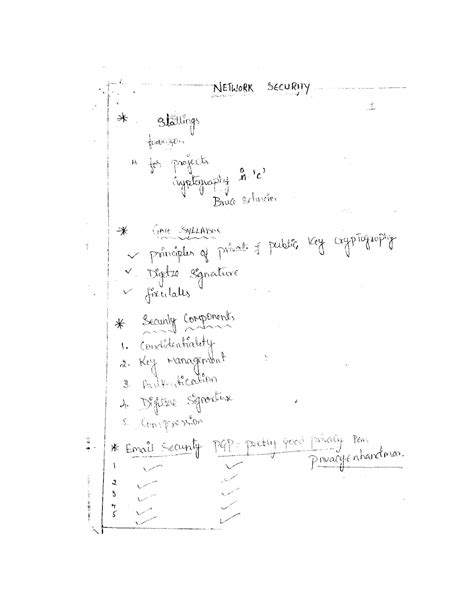 NETWORK SECURITY
1
* Stallings
for projects
cryptography in 'c'
Bruce
* SYLLABUS
✓ principles of private & public, Key Cryptography
✓ Digitze Signature
✓
* Security Components
1. Condidentiality
2. Key Management
3. Authentication
4. Digitze Signature
5. Compression
* Email Security PGP - pretty good privacy Pem
privacy enhandman.
1 ✓ ✓
2 ✓ ✓
3 ✓ ✓
4 ✓ ✓
5 ✓ ✓